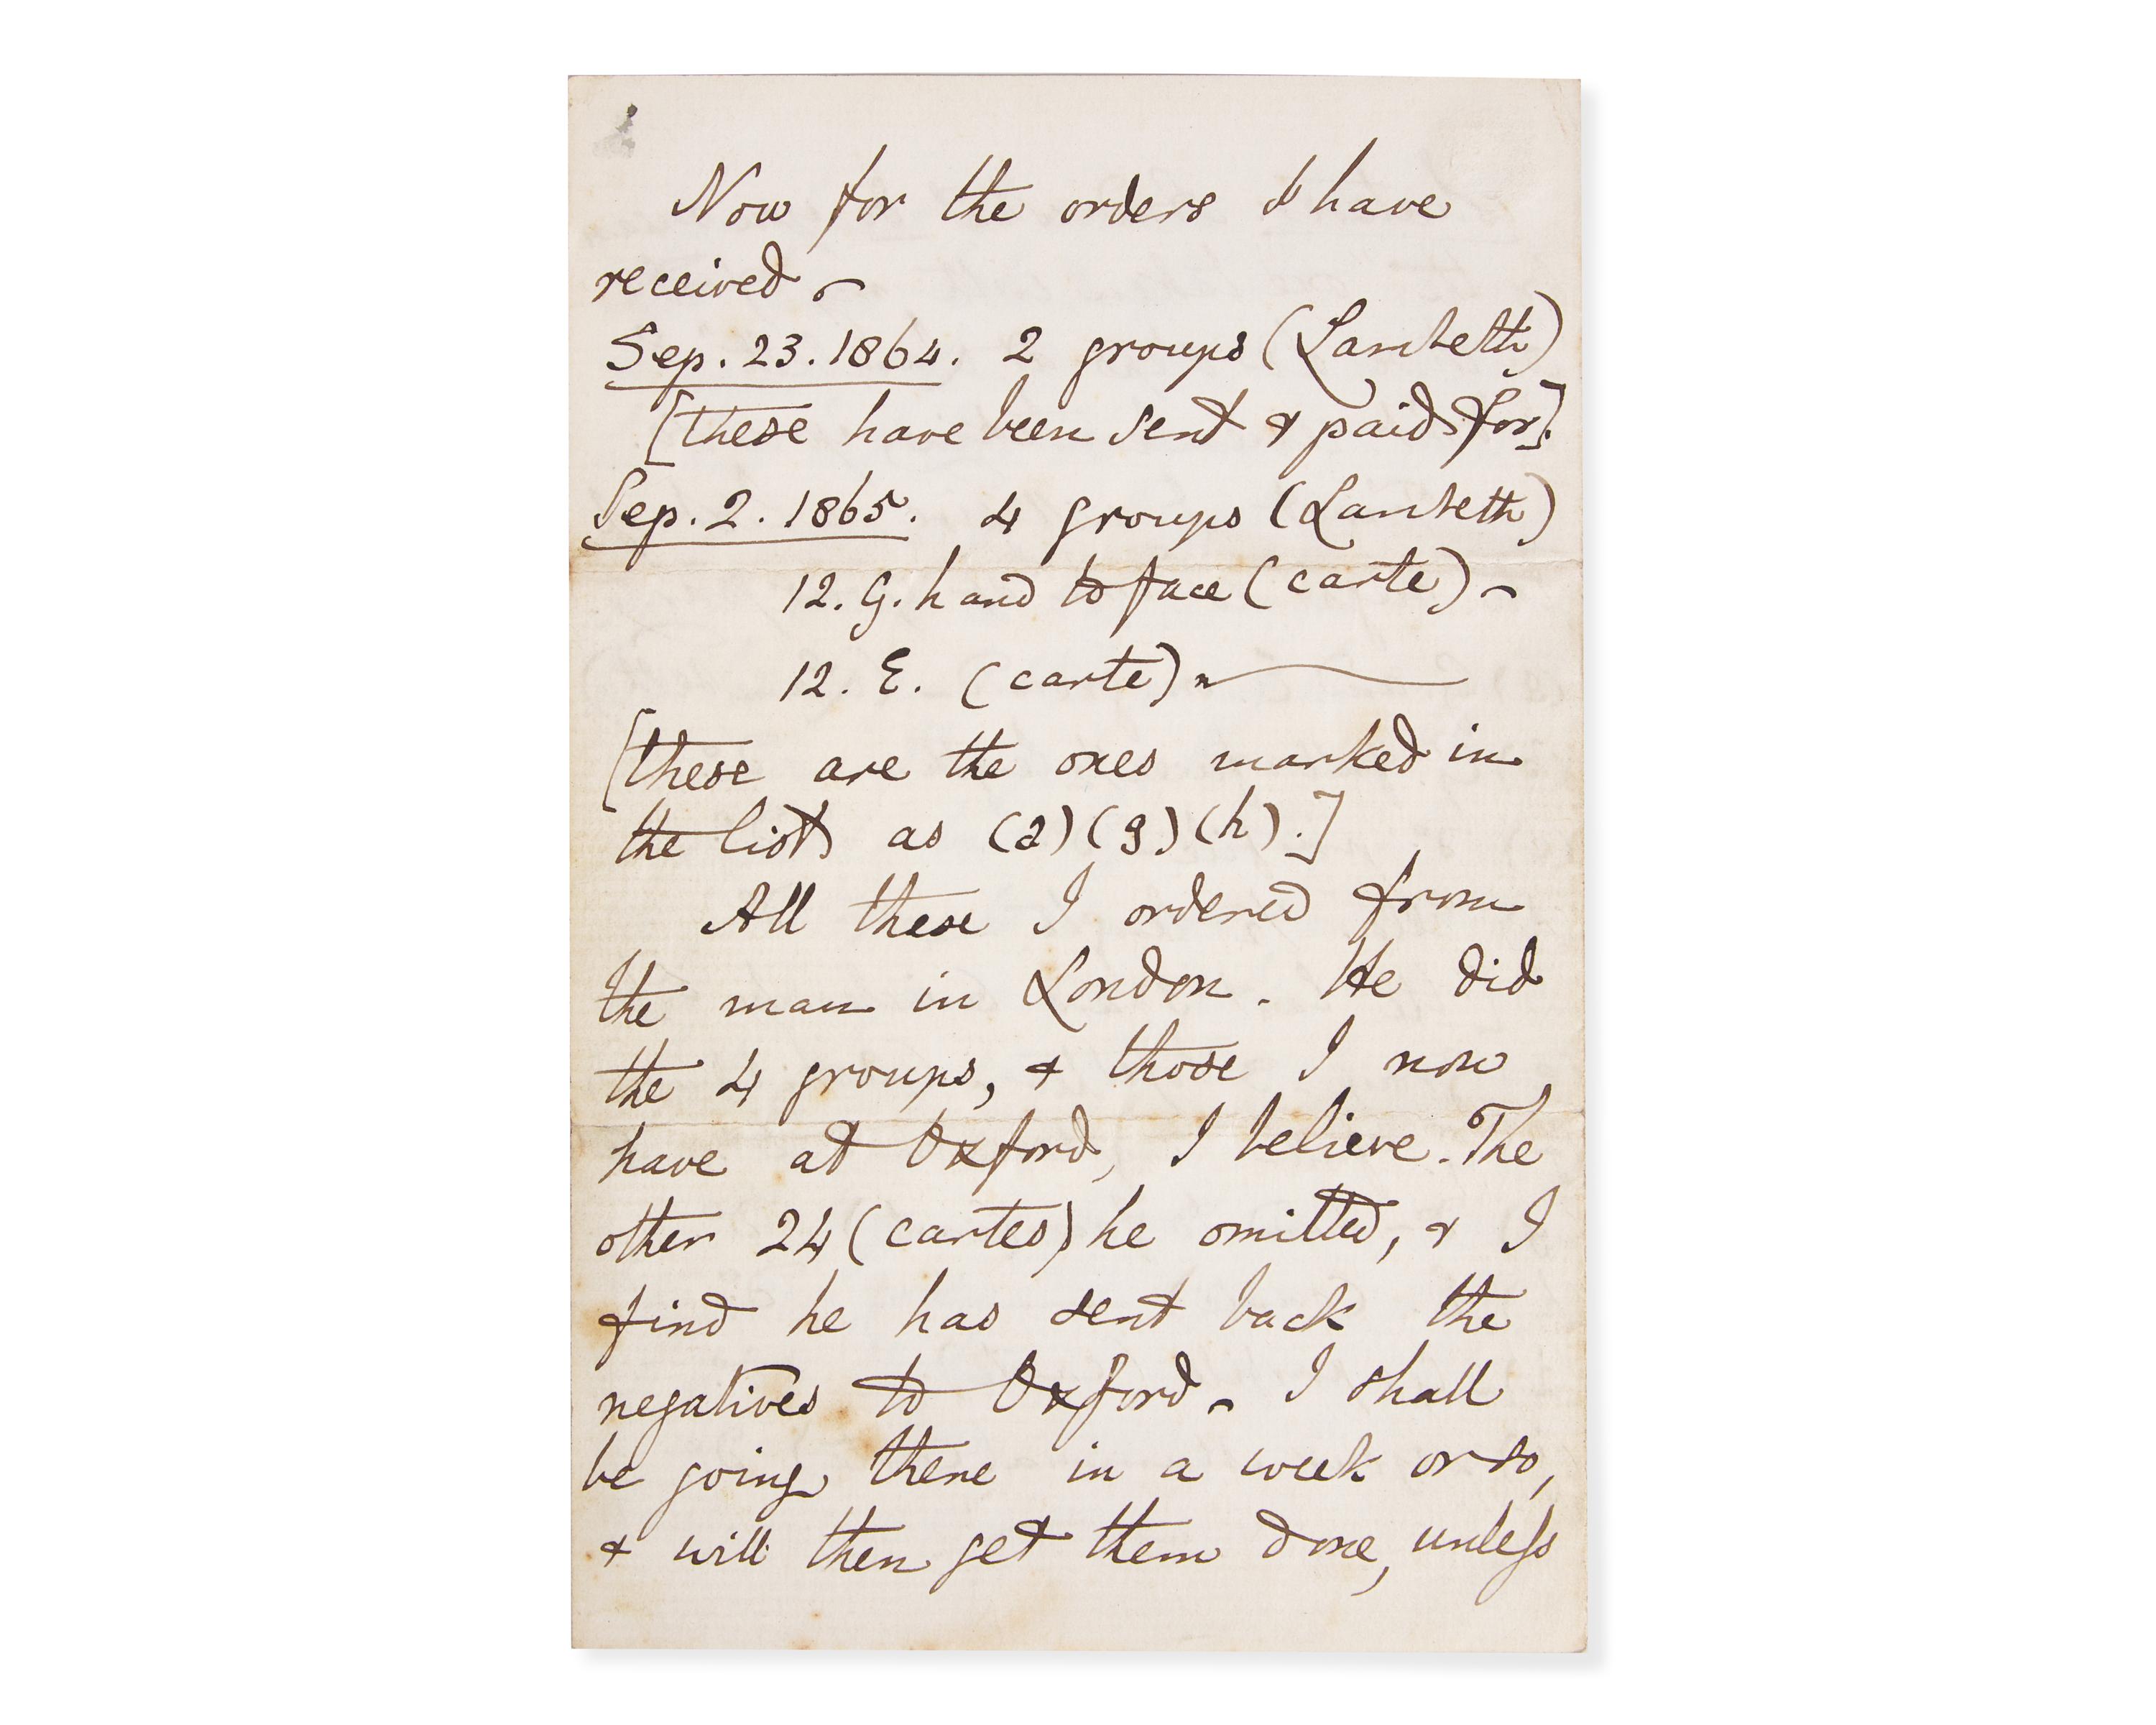 Now for the orders I have
received –
Sep. 23. 1864. 2 groups (Lambeth)
[these have been sent & paid for].
Sep. 2. 1865. 4 groups (Lambeth)
12. G. hand to face (carte) –
12. E. (carte) –
[these are the ones marked in
the list as (a) (g) (h).]
All these I ordered from
the man in London. He did
the 4 groups, & those I now
have at Oxford, I believe. The
other 24 (cartes) he omitted, & I
find he has sent back the
negatives to Oxford – I shall
be going there in a week or so,
& will then get them done, unless